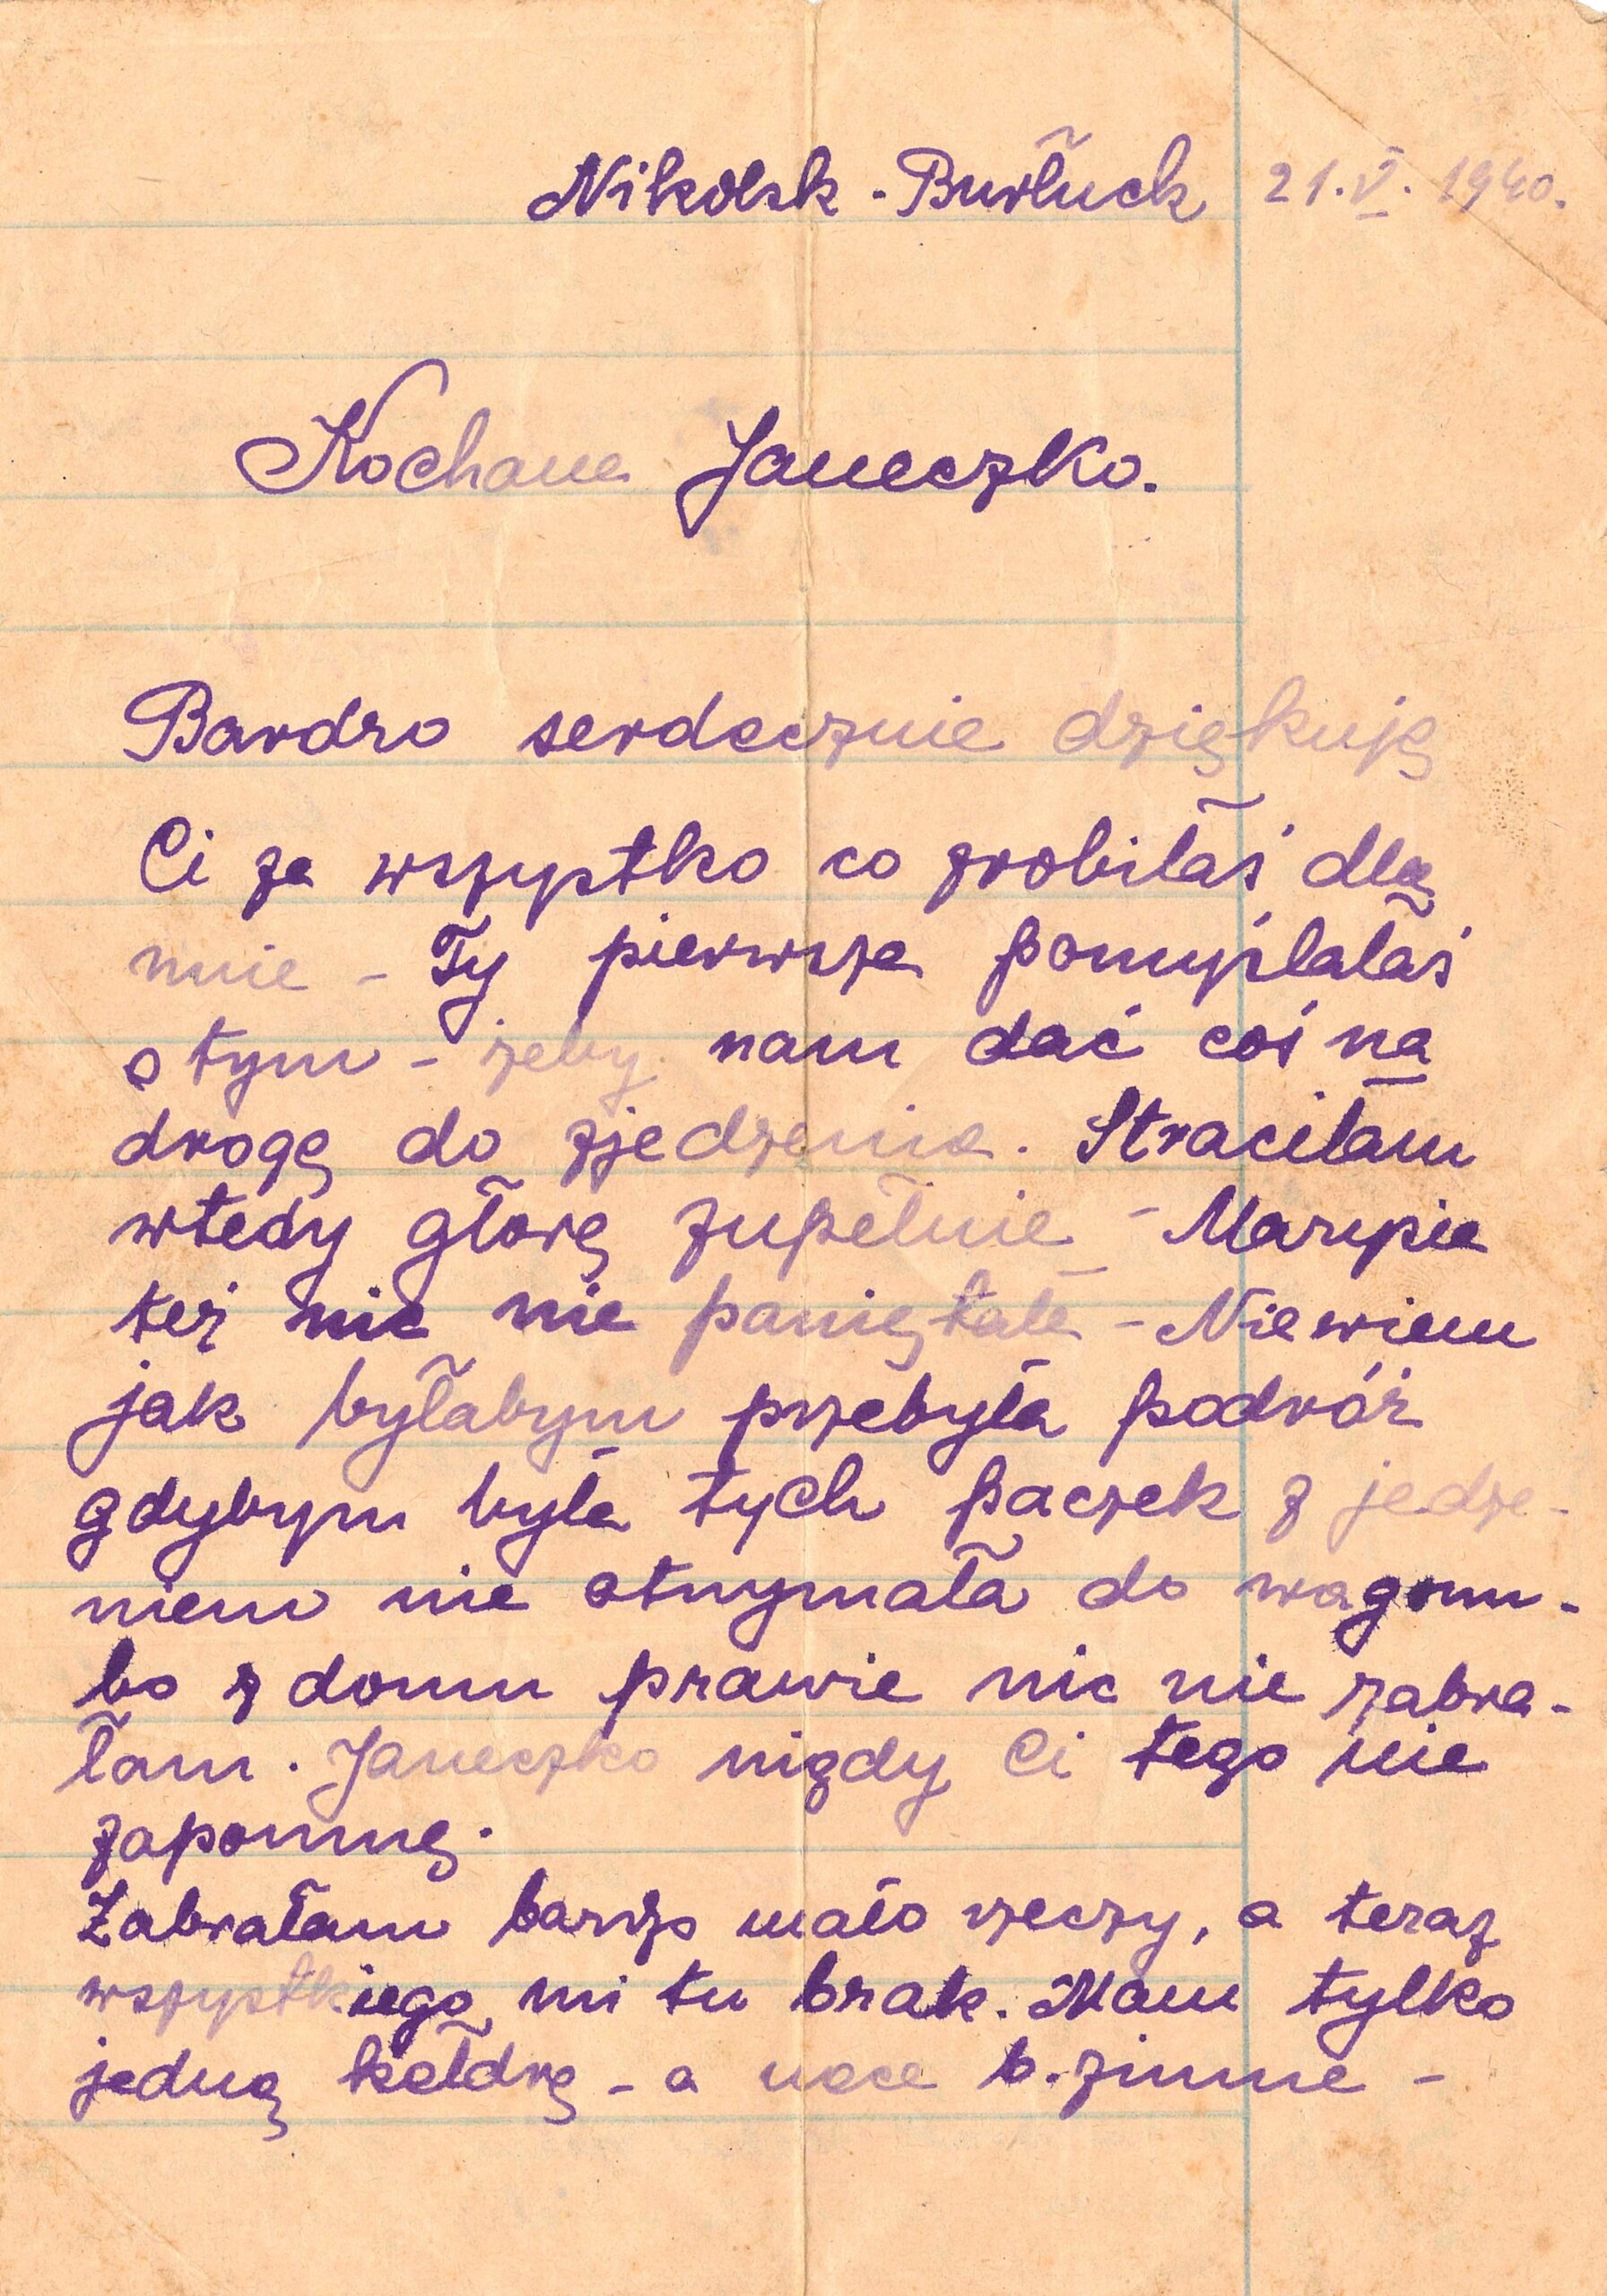 Nikolsk - Burłuck 21.V. 1940.
Kochana Janeczko.
Bardzo serdecznie dziękuję
Ci za wszystko co zrobiłaś dla
mnie - Ty pierwsza pomyślałaś
o tym - żeby nam dać coś na
drogę do zjedzenia. Straciłam
wtedy głowę zupełnie - Marysia
też nic nie pamiętała - Nie wiem
jak byłabym przebyła podróż
gdybym była tych paczek z jedze-
niem nie otrzymała do wagonu -
bo z domu prawie nic nie zabra-
łam. Janeczko nigdy Ci tego nie
zapomnę.
Zabrałam bardzo mało rzeczy, a teraz
wszystkiego mi tu brak. Mam tylko
jedną kołdrę - a noce b. zimne -